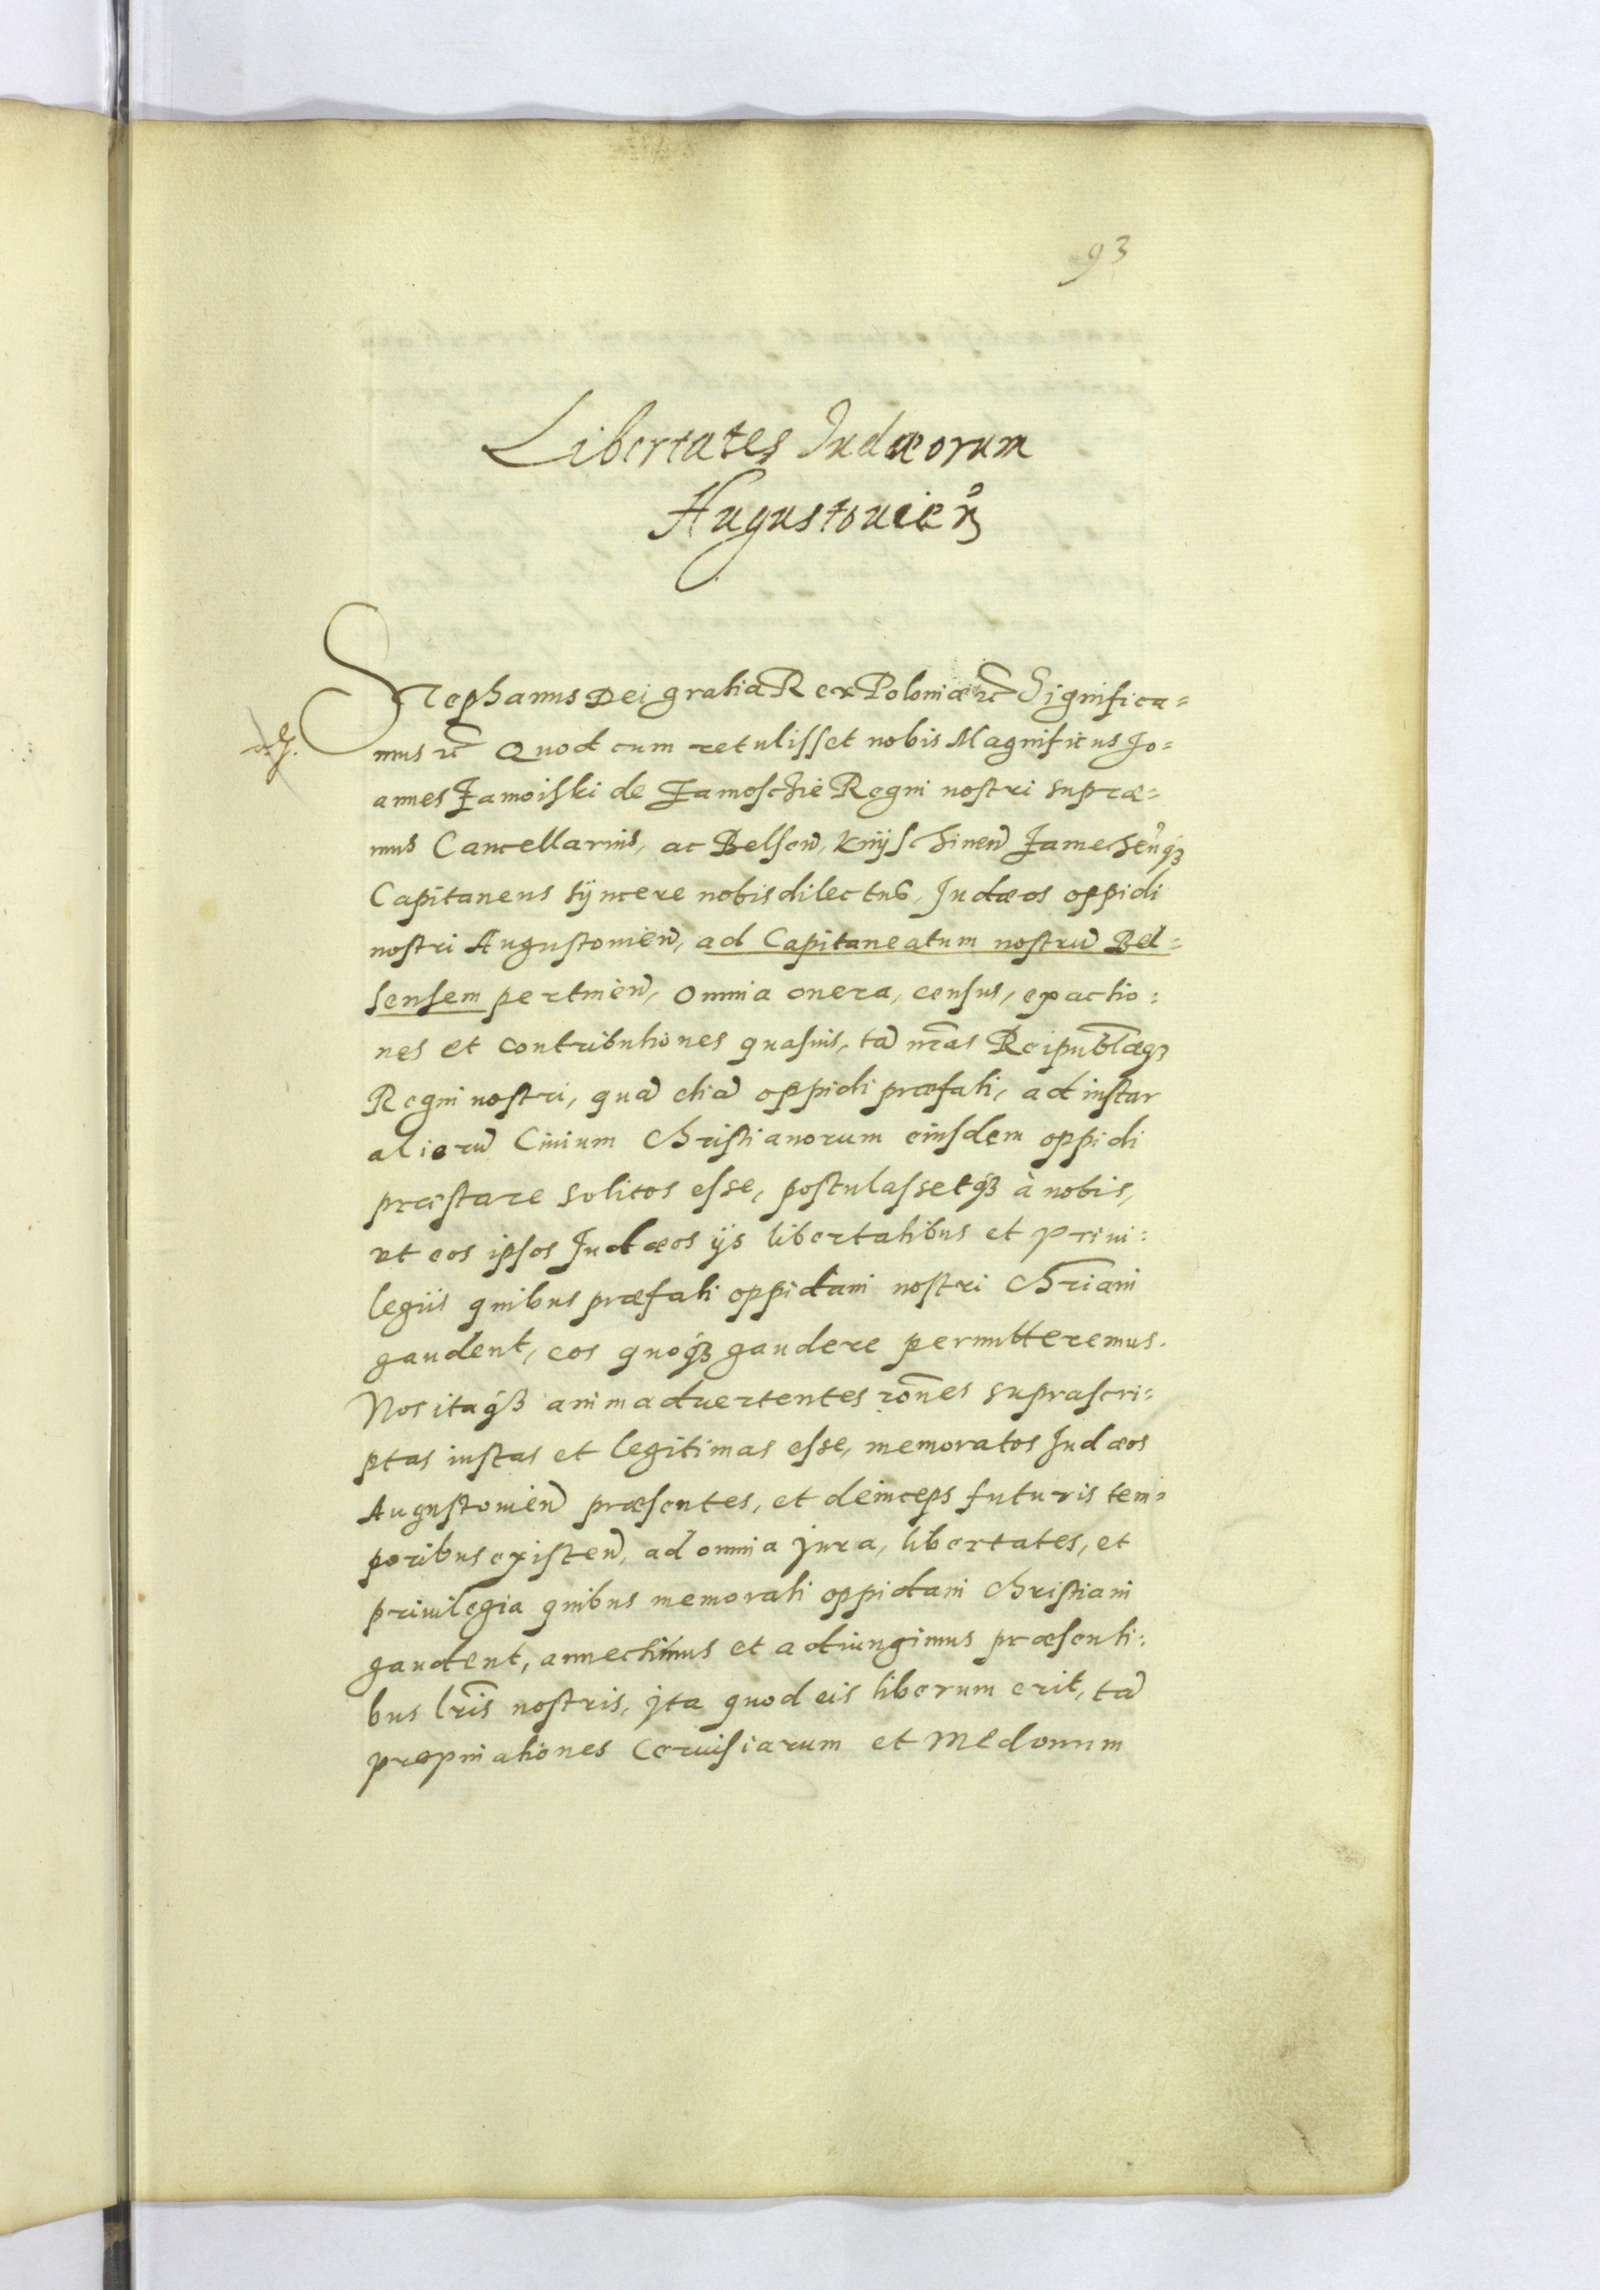 93
Libertates Judæorum
Augustovien̄
Stephanus Dei gratia Rex Poloniæ etc̄ Significa=
mus etc̄ Quod cum retulisset nobis Magnificus Jo=
annes Zamoiski de Zamoschie Regni nostri supræ=
mus Cancellarius, ac Belsen̄, Knÿschinen̄ Zamechen̄q3
Capitaneus sÿncere nobis dilectus, Judæos oppidi
nostri Augustouien̄, ad Capitaneatum nostrū Bel=
sensem pertinen̄, Omnia onera, census, exactio:
nes et contributiones quasuis, tā nr̄as Reipubl̄æq3
Regni nostri, quā etiā oppidi præfati, ad instar
aliorū Ciuium Christianorum eiusdem oppidi
præstare solitos esse, postulassetq3 à nobis,
vt eos ipsos Judæos ijs libertatibus et priui:
legiis quibus præfati oppidani nostri Chr̄iani
gaudent, eos quoq3 gaudere permitteremus.
Nos itaq3 animaduertentes rōnes suprascri=
ptas iustas et legitimas esse, memoratos Judæos
Augustouien̄ præsentes, et deinceps futuris tem=
poribus existen̄, ad omnia jura, libertates, et
priuilegia quibus memorati oppidani Christiani
gaudent, annectimus et adiungimus præsenti:
bus lr̄is nostris, jta quod eis liberum erit, tā
propinationes Ceruisiarum et Medonum